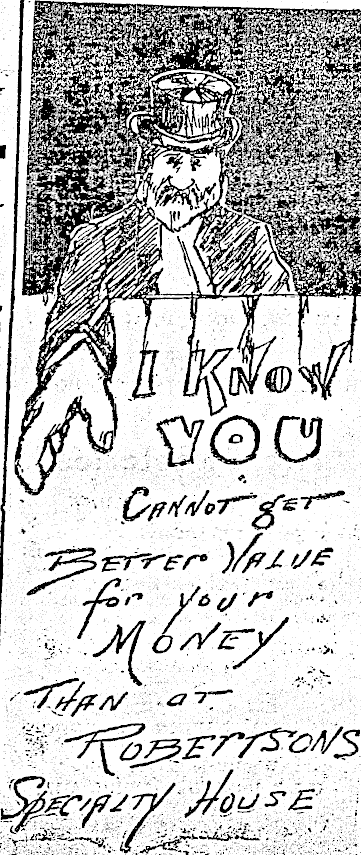 I KNOW
YOU
CANNOT get
BETTER VALUE
for your
MONEY
THAN at
ROBERTSONS
SPECIALTY HOUSE